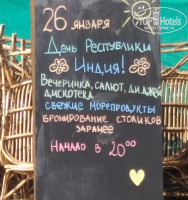 TOP Hotels
26 января
День Республики
Индия!
Вечеринка, салют, ди джей
дискотека
свежие морепродукты
бронирование столиков
заранее
Начало в 20⁰⁰